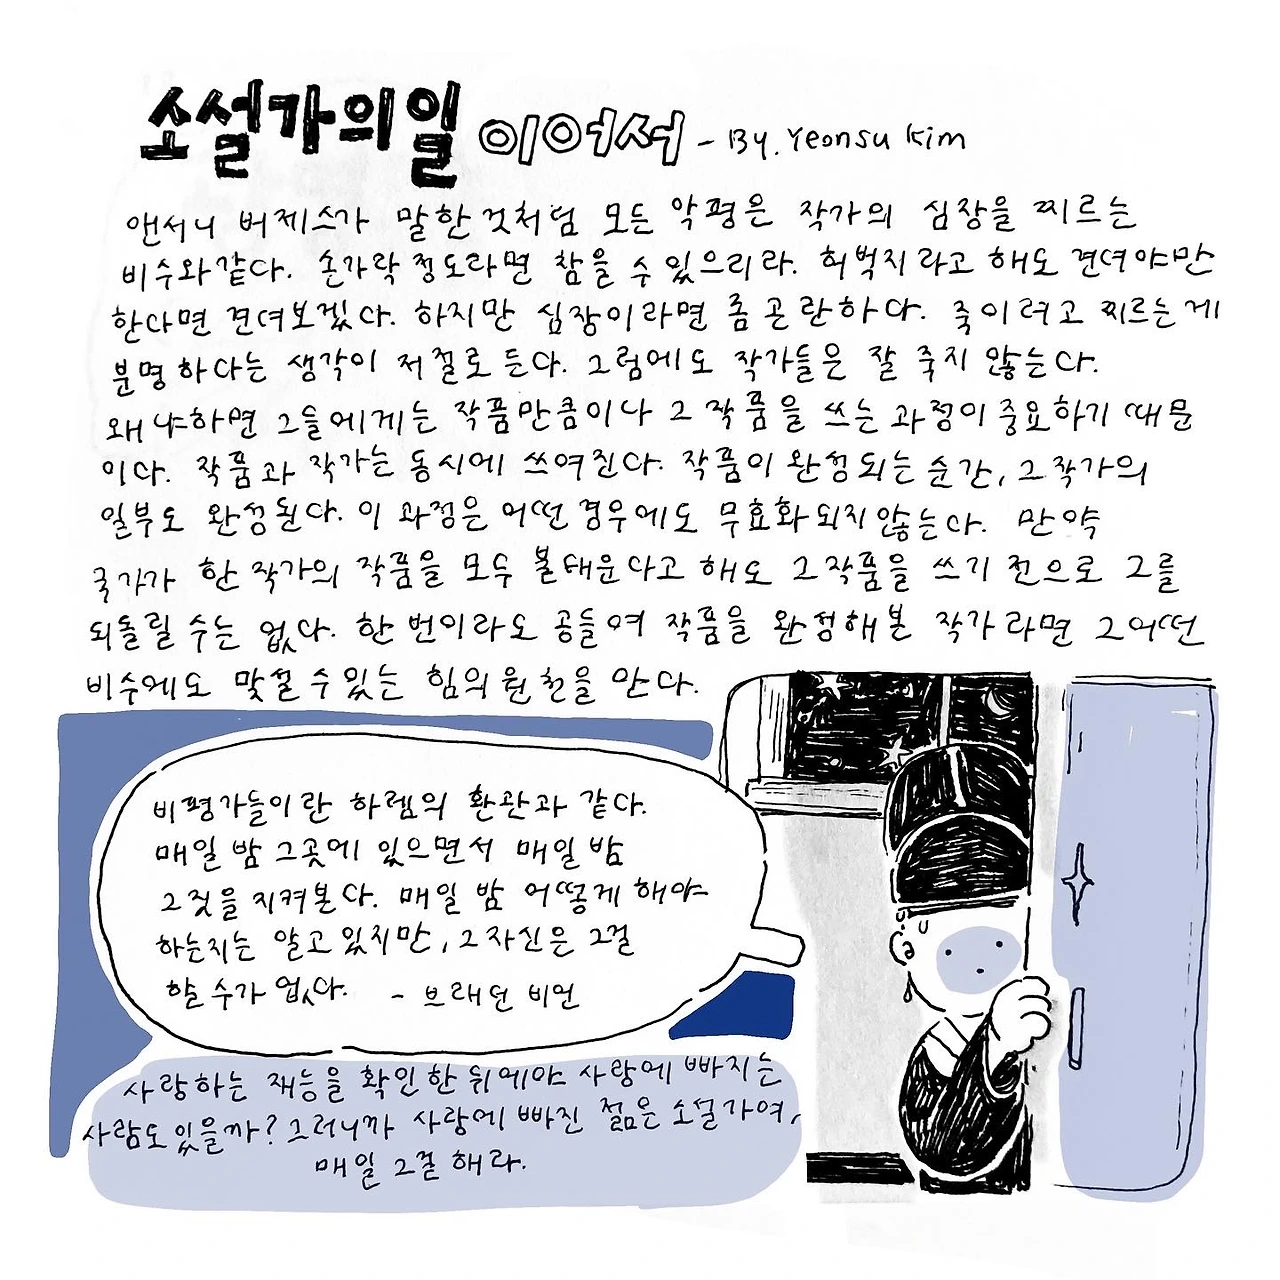 소설가의일 이어서 - By. Yeonsu Kim
앤서니 버제스가 말한 것처럼 모든 악평은 작가의 심장을 찌르는
비수와 같다. 손가락 정도라면 참을 수 있으리라. 허벅지라고 해도 견뎌야만
한다면 견뎌보겠다. 하지만 심장이라면 좀 곤란하다. 죽이려고 찌르는 게
분명하다는 생각이 저절로 든다. 그럼에도 작가들은 잘 죽지 않는다.
왜냐하면 그들에게는 작품만큼이나 그 작품을 쓰는 과정이 중요하기 때문
이다. 작품과 작가는 동시에 쓰여진다. 작품이 완성되는 순간, 그 작가의
일부도 완성된다. 이 과정은 어떤 경우에도 무효화되지 않는다. 만약
국가가 한 작가의 작품을 모두 불태운다고 해도 그 작품을 쓰기 전으로 그를
되돌릴 수는 없다. 한 번이라도 공들여 작품을 완성해본 작가라면 그 어떤
비수에도 맞설 수 있는 힘의 원천을 안다.
비평가들이란 하렘의 환관과 같다.
매일 밤 그곳에 있으면서 매일 밤
그것을 지켜본다. 매일 밤 어떻게 해야
하는지는 알고 있지만, 그 자신은 그걸
할 수가 없다. - 브래던 비언
사랑하는 재능을 확인한 뒤에야 사랑에 빠지는
사람도 있을까? 그러니까 사랑에 빠진 젊은 소설가여,
매일 그걸 해라.